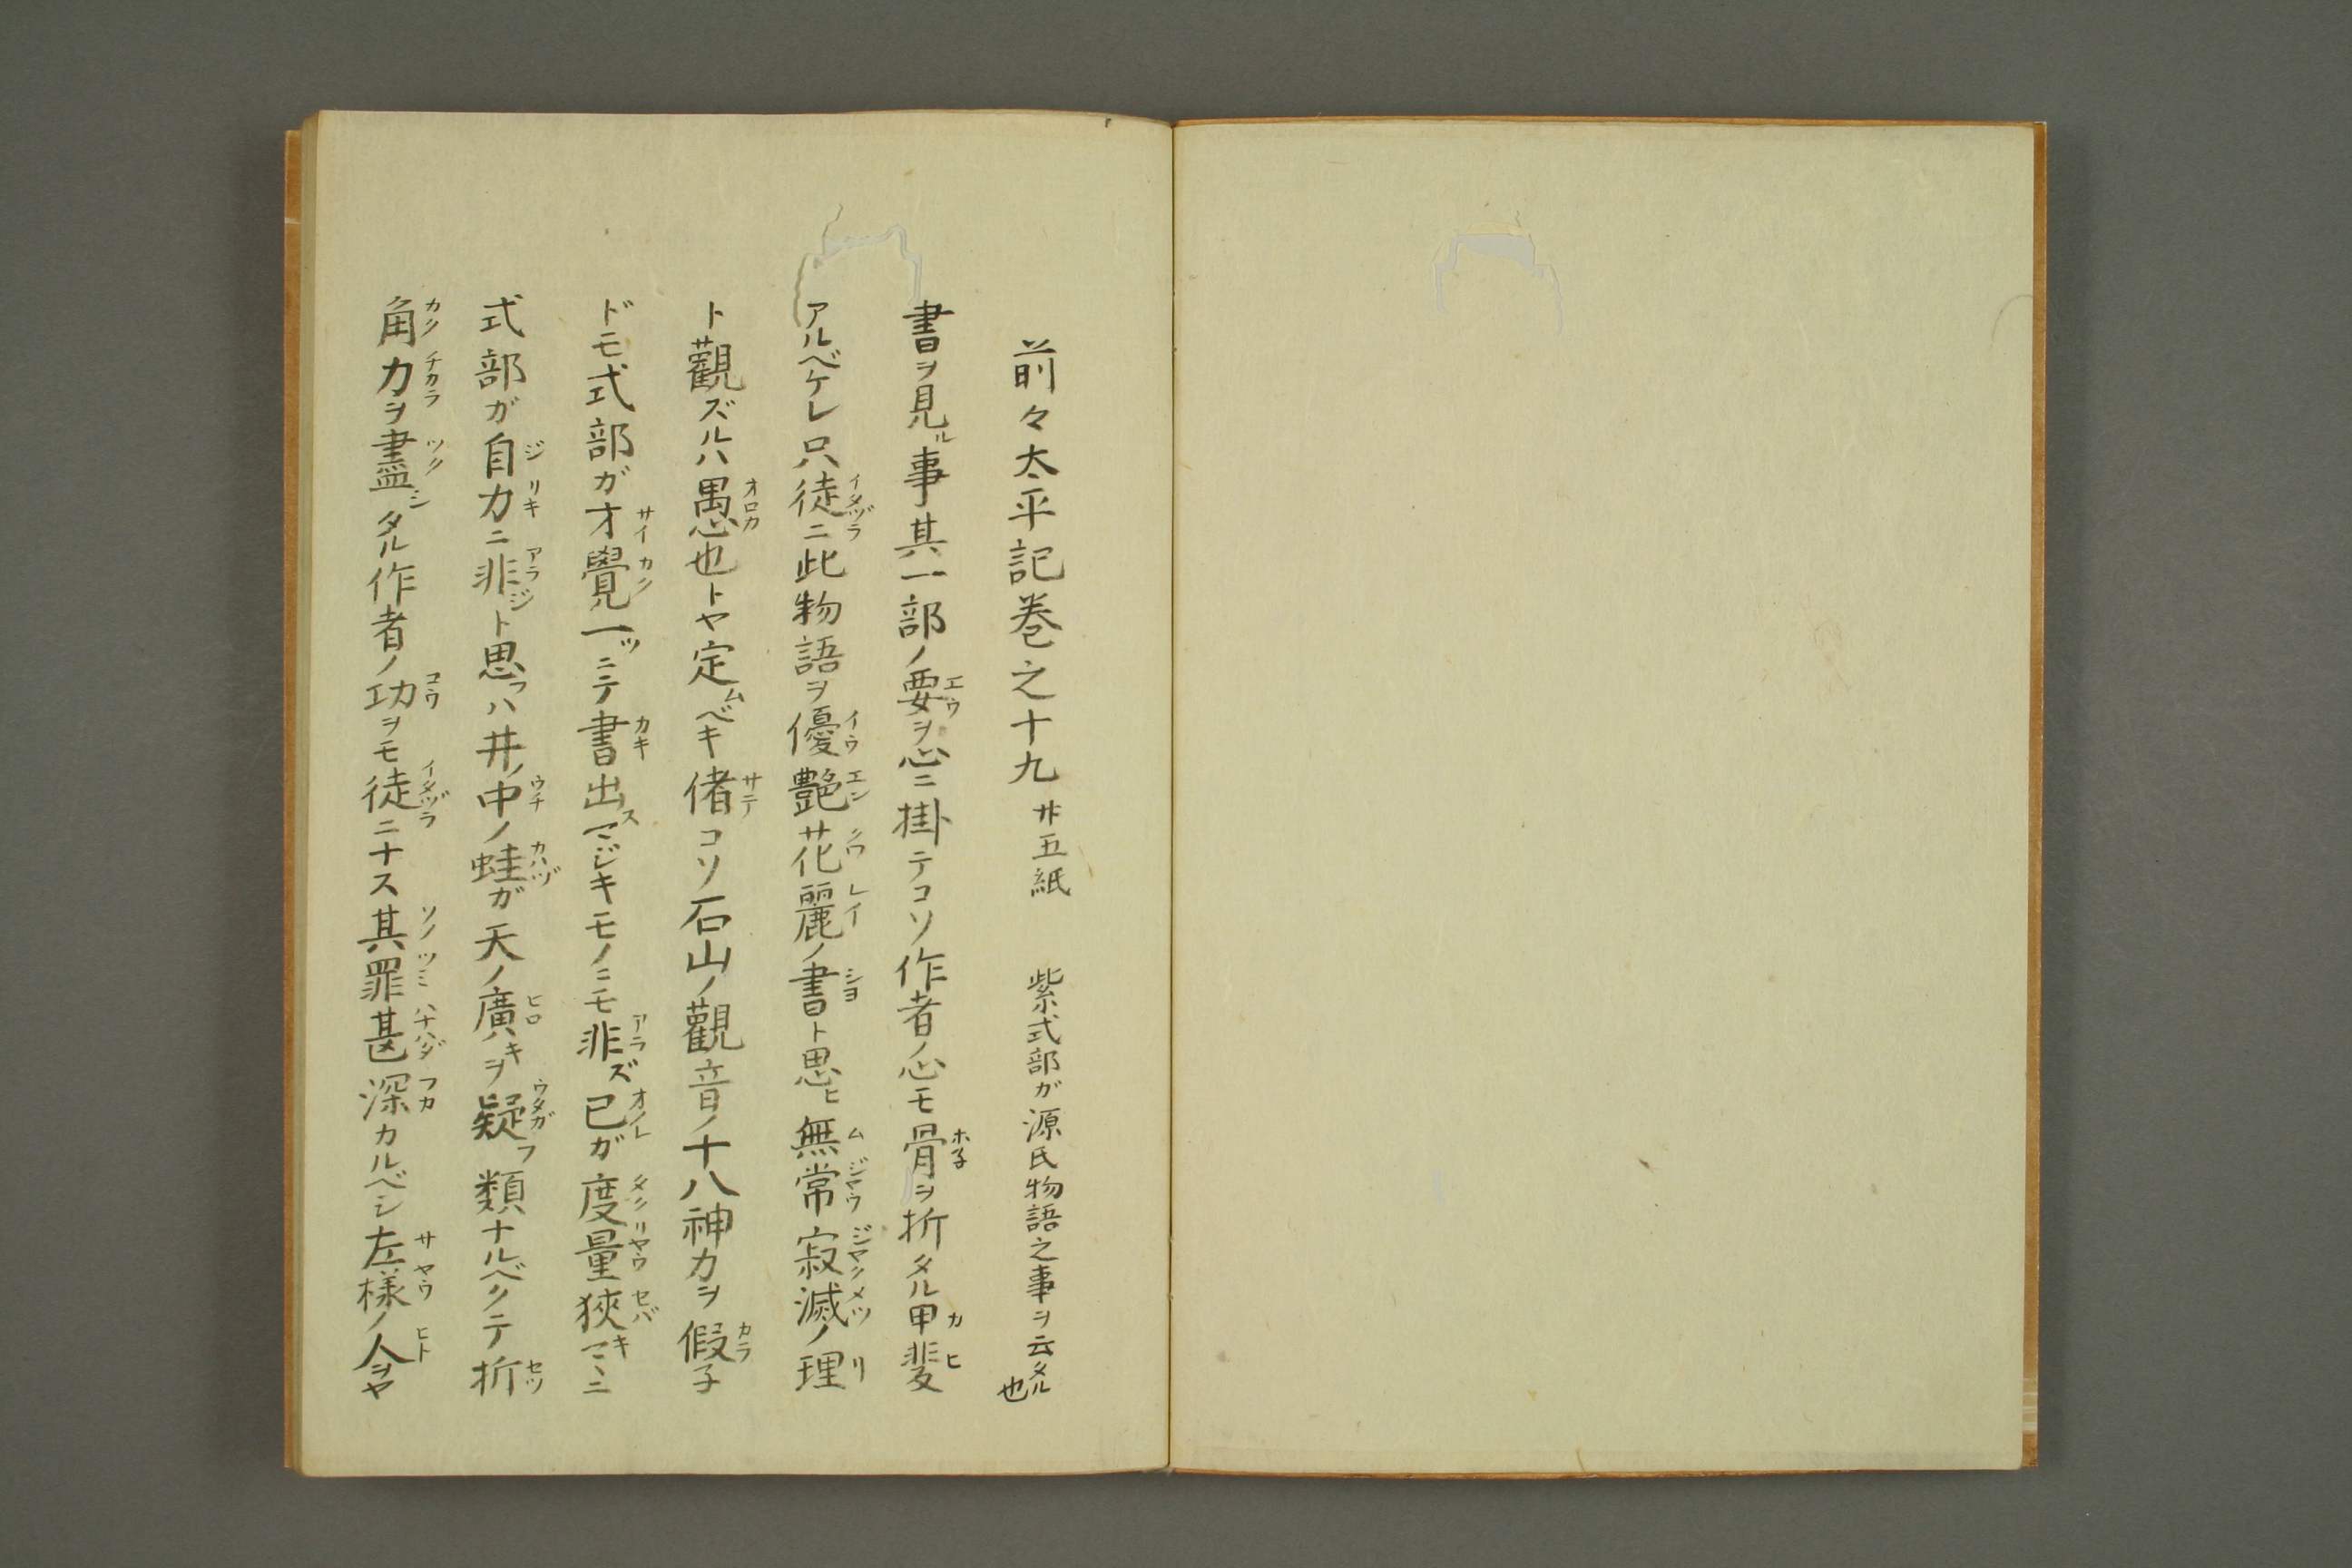 前々太平記巻之十九 廿五紙 紫式部ガ源氏物語之事ヲ云タル也
書ヲ見ル事其一部ノ要ヲ心ニ掛テコソ作者ノ心モ骨ヲ折タル甲斐
アルベケレ只徒ニ此物語ヲ優艶花麗ノ書ト思ヒ無常寂滅ノ理
ト觀ズルハ愚也トヤ定ムベキ偖コソ石山ノ觀音ノ十八神力ヲ假子
ドモ式部ガ才覺一ツニテ書出スマジキモノニモ非ズ已ガ度量狹キマヽニ
式部ガ自力ニ非ジト思フハ井ノ中ノ蛙ガ天ノ廣キヲ疑フ類ナルベクテ折
角力ヲ盡シタル作者ノ功ヲモ徒ニナス其罪甚深カルベシ左様ノ人ヲヤ